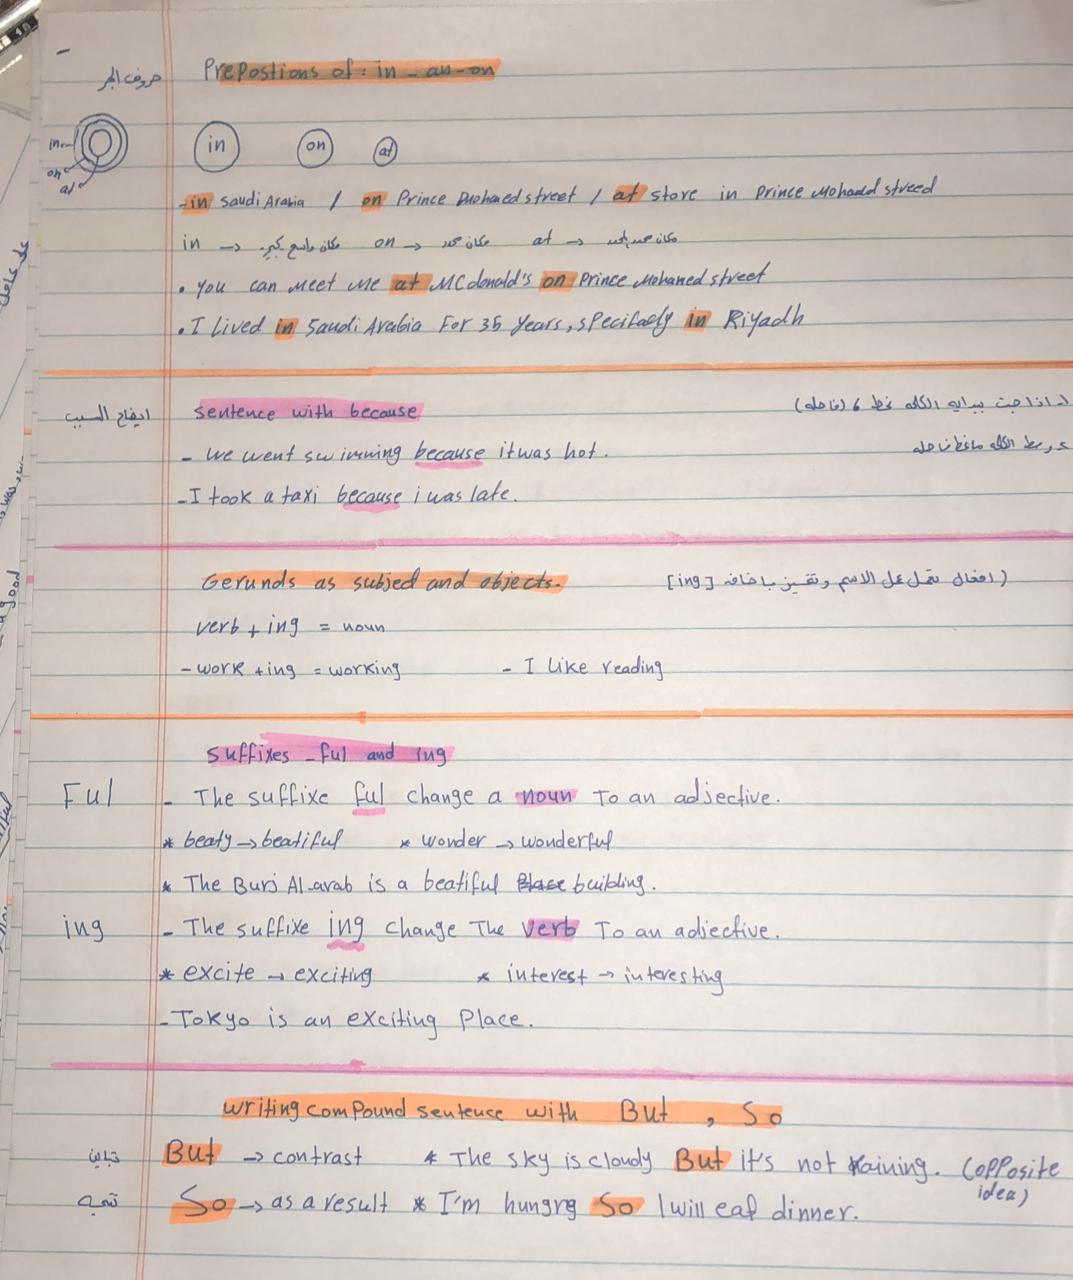 حروف الجر
Prepostions of: in - an - on
in
on
at
in on at
- in Saudi Arabia / on Prince Mohamed street / at store in Prince Mohamed streed
in → مكان واسع كبير on → مكان محدد at →
. You can meet me at MCdonald's on Prince Mohamed street
. I lived in Saudi Arabia For 35 Years, specifacly in Riyadh
ايضاح السبب
sentence with because
اذا جت ببدايه الكلمه نحط (فاصله)
- we went swimming because it was hot.
وسط الكلمه مانحط فاصله
- I took a taxi because i was late.
Gerunds as subjed and objects.
(افعال تعمل عمل الاسم وتتميز باضافه [ing]
verb + ing = noun
- work + ing = working - I like reading
suffixes - ful and ing
Ful - The suffixe ful change a noun To an adjective.
* beaty → beatiful * wonder → wonderful
* The Burj Al-arab is a beatiful Place building.
ing - The suffixe ing change The verb To an adjective.
* excite → exciting * interest → interesting
- Tokyo is an exciting Place.
writing comPound sentence with But , So
تباين But → contrast * The sky is cloudy But it's not raining. (opposite idea)
نتيجه So → as a result * I'm hungry So I will eat dinner.